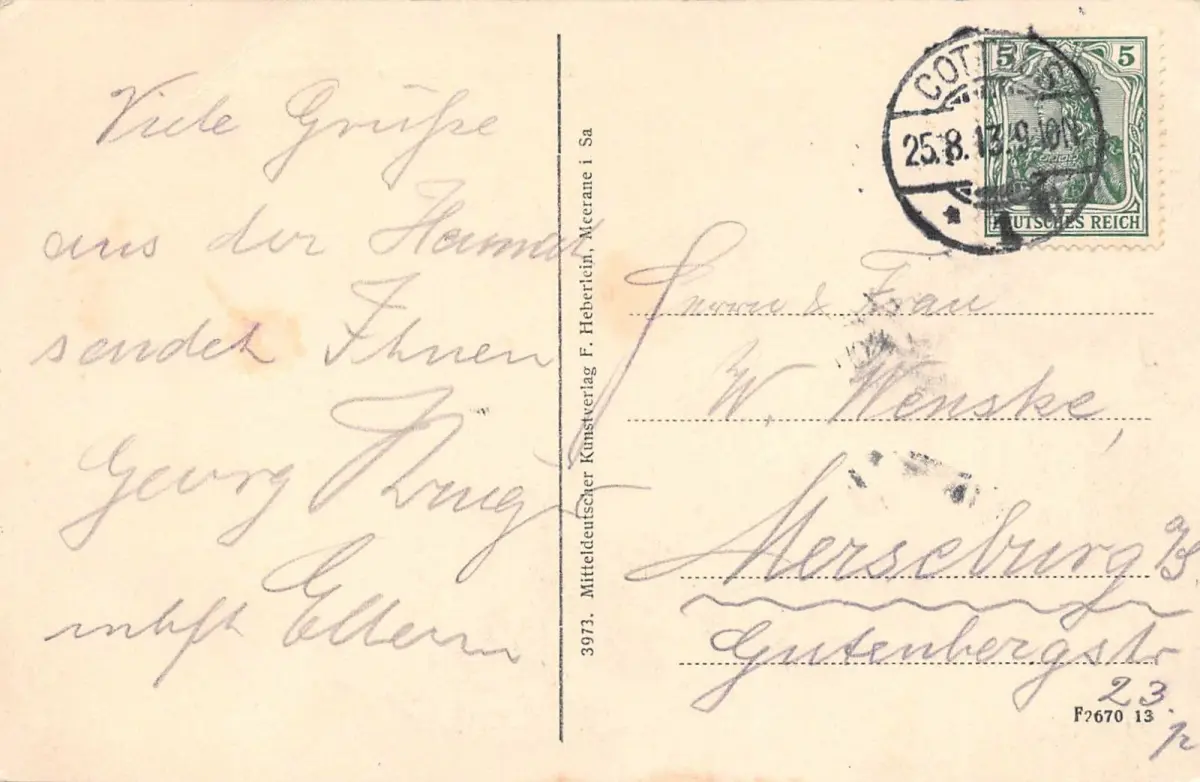 Viele Grüße
aus der Heimat
sendet Ihnen
Georg
nebst Eltern
3973. Mitteldeutscher Kunstverlag F. Heberlein, Meerane i Sa
COTTBUS
25.8.13.9-10N
* 1
5 5
DEUTSCHES REICH
Herrn & Frau
W. Wenske,
Merseburg a/S.
Gutenbergstr
23.
F2670 13